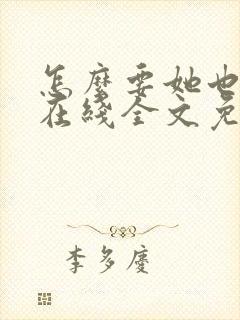 怎麽要她也
在綫全文免
李多慶